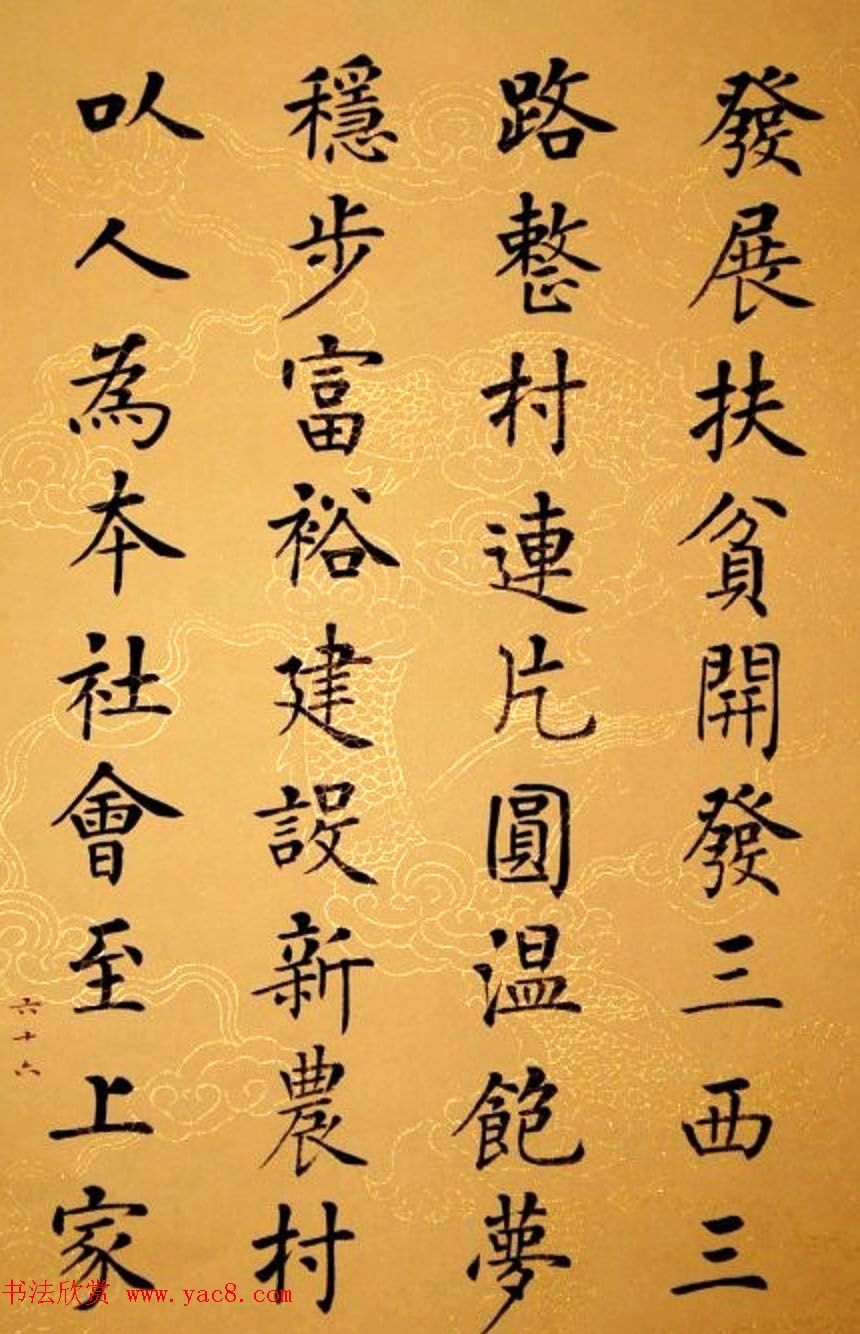 發展扶貧開發三西三
路整村連片圓溫飽夢
穩步富裕建設新農村
以人為本社會至上家
六十六
书法欣赏 www.yac8.com